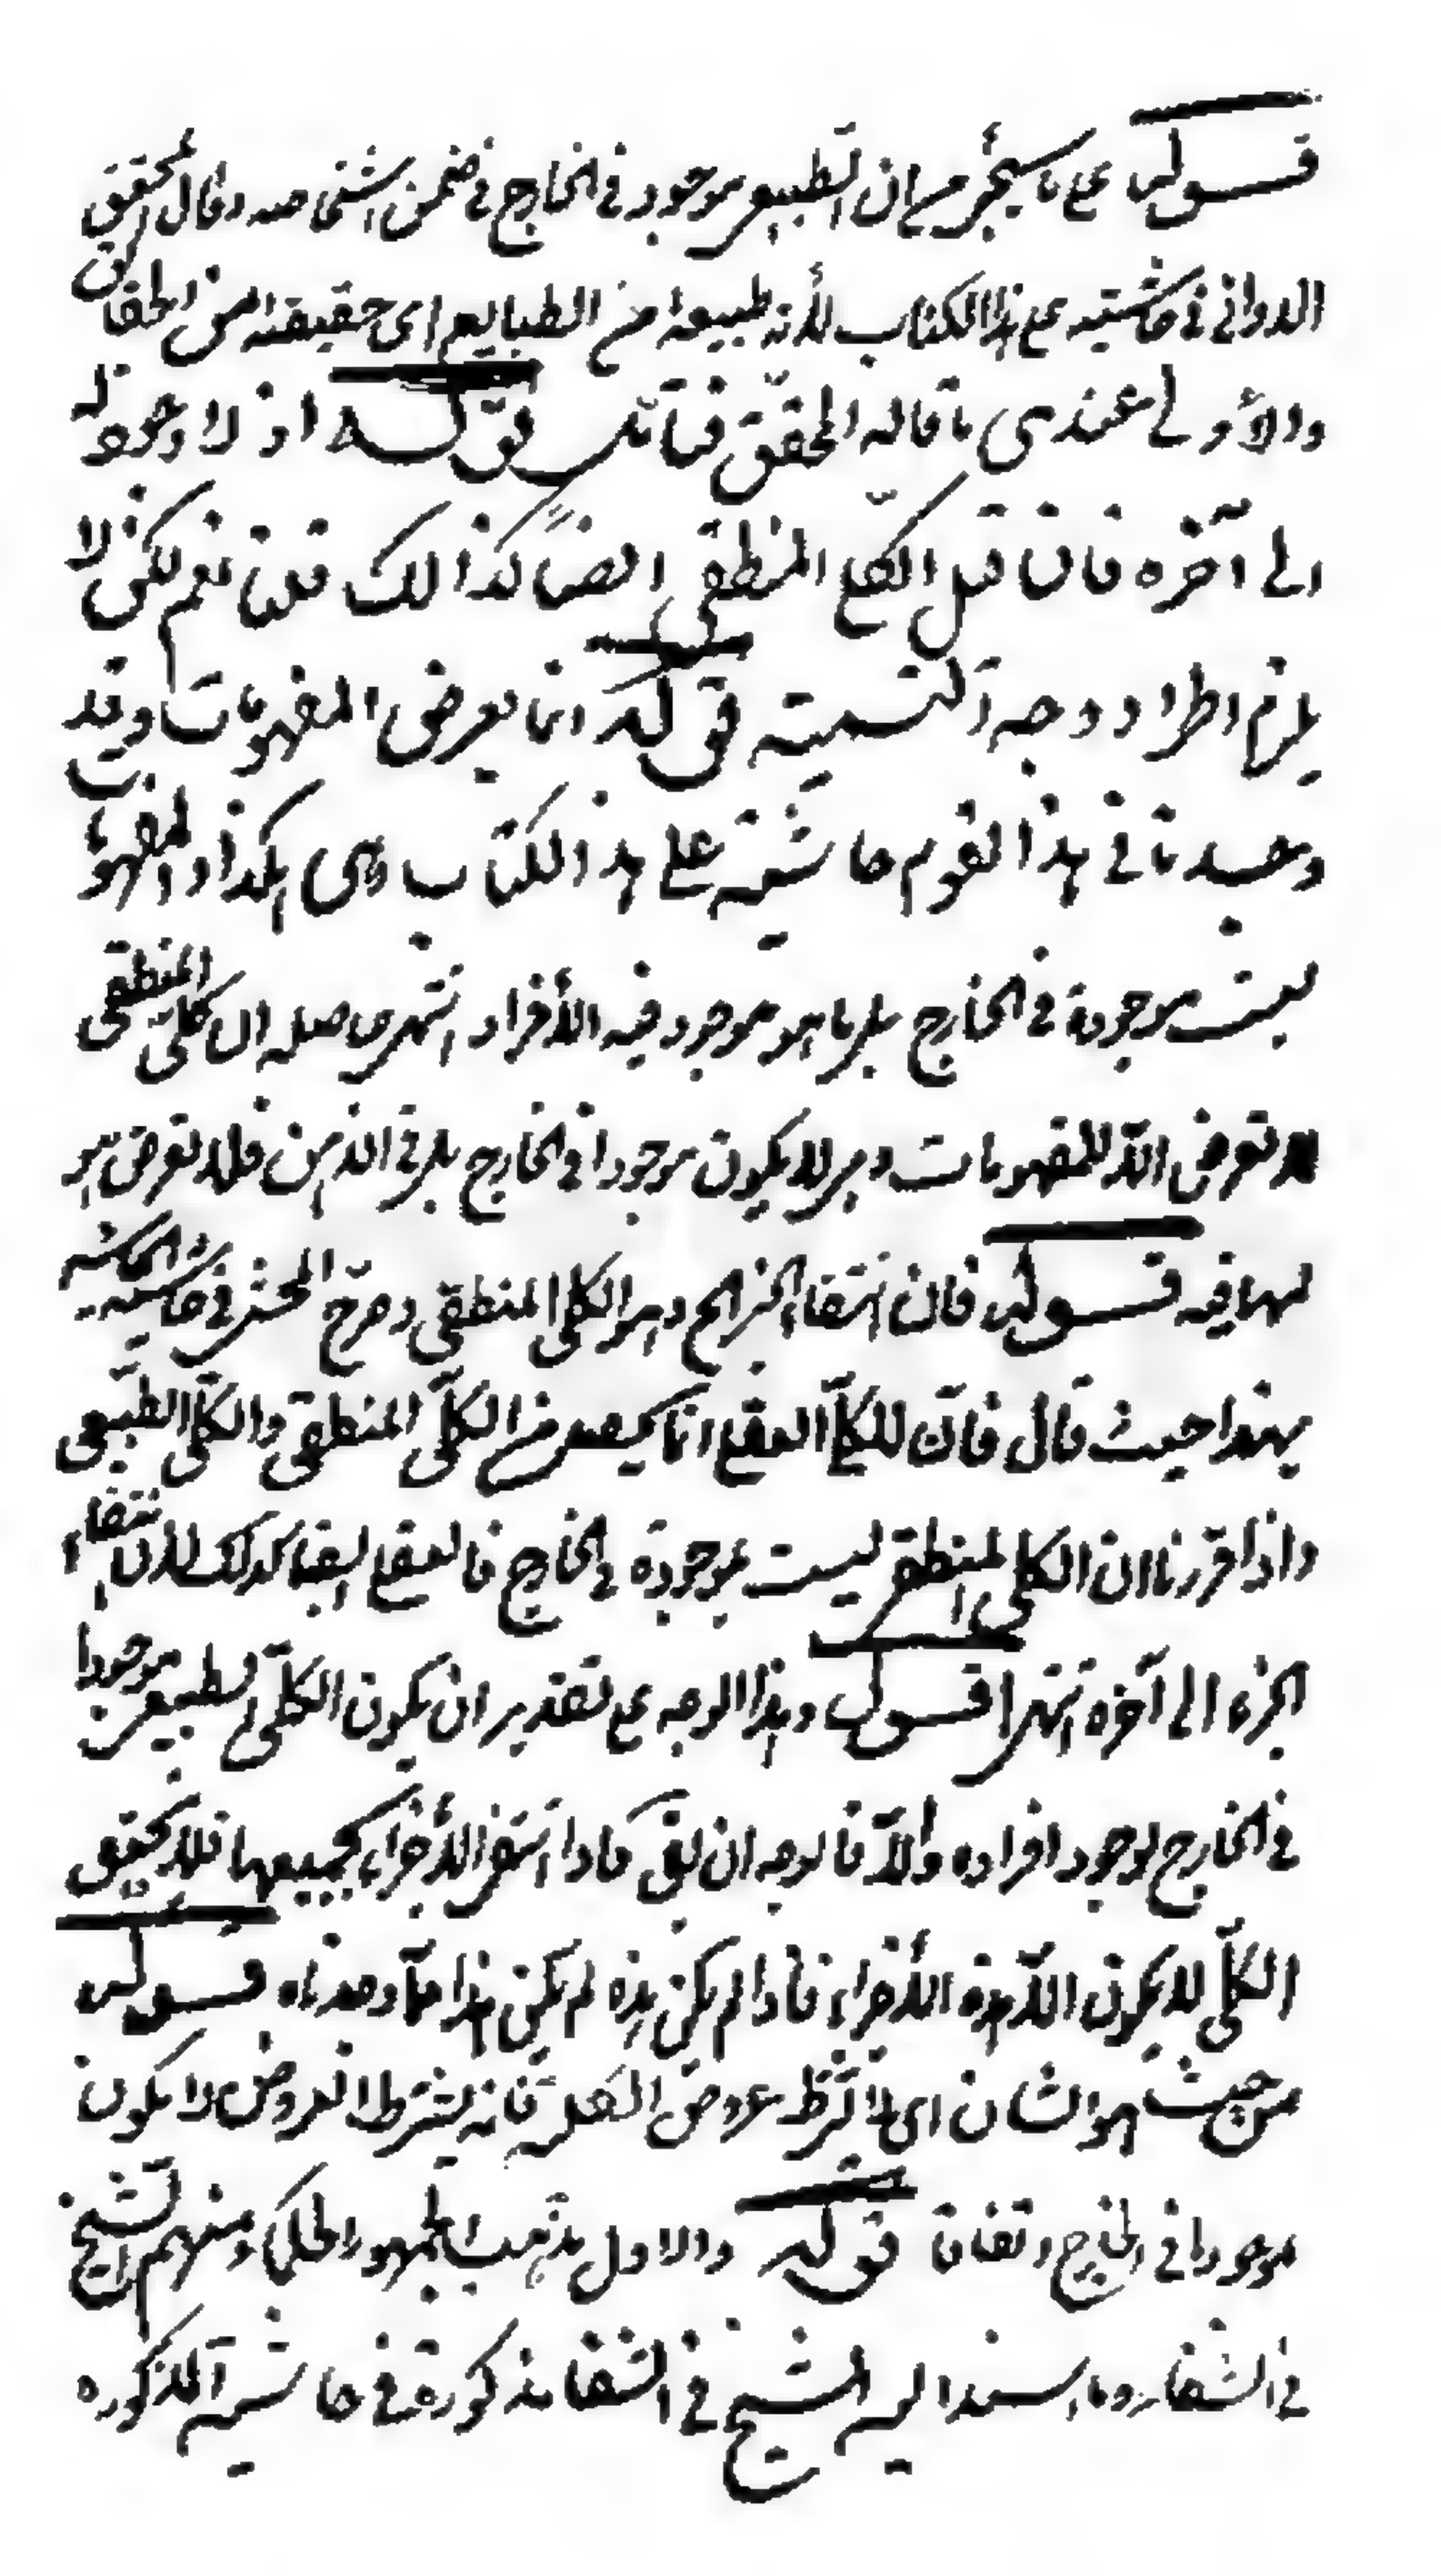 قوله على ما سيجئ من ان الطبيعي موجود في الخارج في ضمن اشخاصه وقال المحقق
الدواني في حاشيته على هذا الكتاب لأنه طبيعة من الطبايع اى حقيقته من الحقائق
والأولى عندى ما قاله المحقق فتأمل قوله اذ لا وجود له
الى آخره فان قيل الكلي المنطقي ايضا كذالك قلنا نعم لكن لا
يلزم اطراد وجه التسمية قوله انما يعرض المفهومات وقد
وجدنا في هذا القوم حاشية على هذا الكتاب وهى هكذا والمفهومات
ليست موجودة في الخارج بل ما هو موجود فيه الأفراد انتهى حاصله ان كلى المنطقى
لا تعرض الا للمفهومات وهى لا يكون موجودا في الخارج بل في الذهن فلا تعرض هو
لها فيه قوله فان انتفاء الجزء الخ وهو الكلى المنطقى وصرح المحشى في حاشية الحاشية
بهذا حيث قال فان للكلى العقلى انما يحصل من الكلى المنطقى والكلى الطبيعى
واذا قررنا ان الكلى المنطقى ليست بموجودة في الخارج فالعقلى ايضا كذلك لان انتفاء
الجزء الى آخره انتهى قوله وهذا الوجه على تقدير ان يكون الكلى الطبيعى موجودا
في الخارج لوجود افراده والا فالوجه ان يق فاذا انتفى الأجزاء بجميعها فلا يتحقق
الكلى لا يكون الا هذه الأجزاء فاذا لم يكن هذه لم يكن هذا ما وجدناه قوله
من حيث هو انسان اى لا بشرط عروض الكلية فانه بشرط العروض لا يكون
موجودا في الخارج اتفاقا قوله والاول مذهب الجمهور الحكماء ومنهم الشيخ
في الشفاء وما اسند اليه الشيخ في الشفا مذكورة في حاشية المذكوره